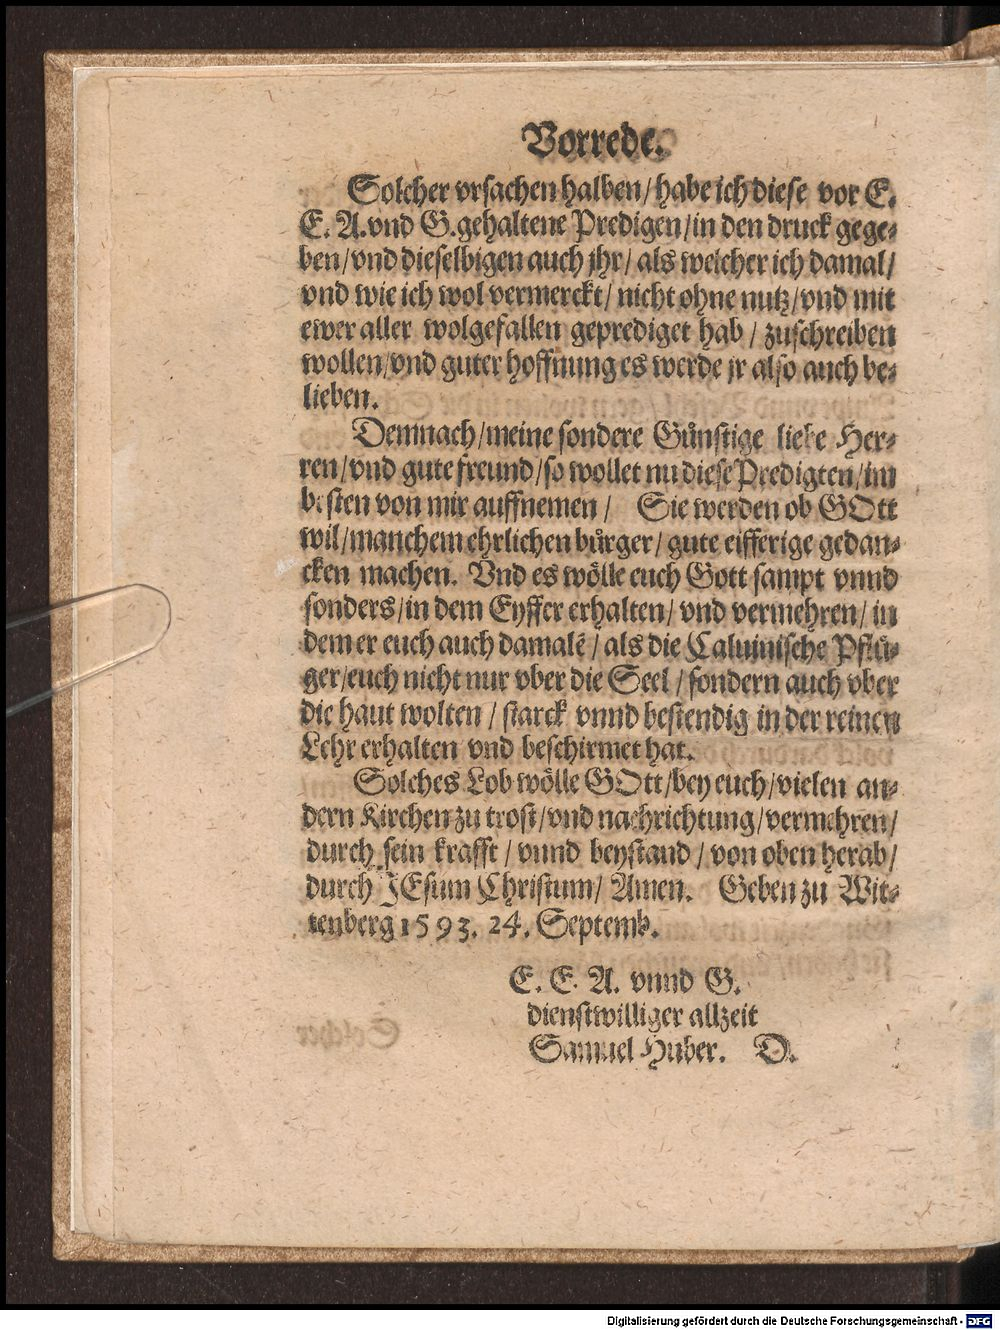 Vorrede.
Solcher vrsachen halben/ habe ich diese vor E.
E. A. vnd G. gehaltene Predigen/ in den druck gege-
ben/ vnd dieselbigen auch jhr/ als welcher ich damal/
vnd wie ich wol vermerckt/ nicht ohne nutz/ vnd mit
ewer aller wolgefallen geprediget hab/ zuschreiben
wollen/ vnd guter hoffnung es werde jr also auch be-
lieben.
Demnach/ meine sondere Gůnstige liebe Her-
ren/ vnd gute freund/ so wollet nu diese Predigten/ im
besten von mir auffnemen/ Sie werden ob GOtt
wil/ manchem ehrlichen bůrger/ gute eifferige gedan-
cken machen. Vnd es wölle euch Gott sampt vnnd
sonders/ in dem Eyffer erhalten/ vnd vermehren/ in
dem er euch auch damalẽ/ als die Caluinische Pflů-
ger/ euch nicht nur vber die Seel/ sondern auch vber
die haut wolten/ starck vnnd bestendig in der reinen
Lehr erhalten vnd beschirmet hat.
Solches Lob wölle GOtt/ bey euch/ vielen an-
dern Kirchen zu trost/ vnd nachrichtung/ vermehren/
durch sein krafft/ vnnd beystand/ von oben herab/
durch JEsum Christum/ Amen. Geben zu Wit-
tenberg 1593. 24. Septemb.
E. E. A. vnnd G.
dienstwilliger allzeit
Samuel Huber. D.
Digitalisierung gefördert durch die Deutsche Forschungsgemeinschaft - DFG